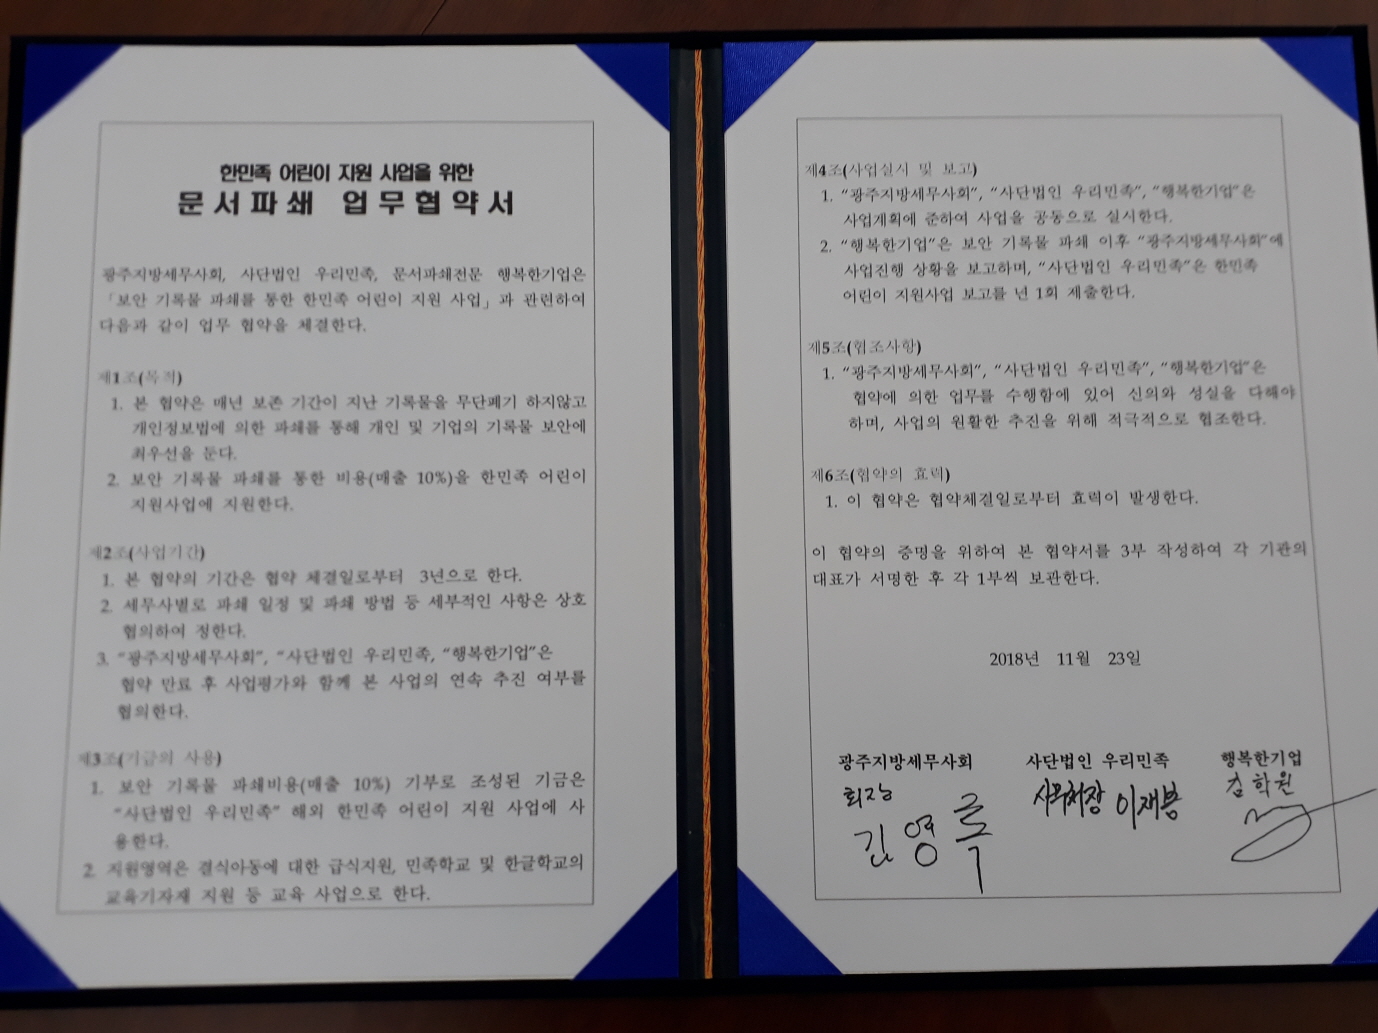 한민족 어린이 지원 사업을 위한
문서파쇄 업무협약서
광주지방세무사회, 사단법인 우리민족, 문서파쇄전문 행복한기업은
「보안 기록물 파쇄를 통한 한민족 어린이 지원 사업」과 관련하여
다음과 같이 업무 협약을 체결한다.
제1조(목적)
1. 본 협약은 매년 보존 기간이 지난 기록물을 무단폐기 하지않고
개인정보법에 의한 파쇄를 통해 개인 및 기업의 기록물 보안에
최우선을 둔다.
2. 보안 기록물 파쇄를 통한 비용(매출 10%)을 한민족 어린이
지원사업에 지원한다.
제2조(사업기간)
1. 본 협약의 기간은 협약 체결일로부터 3년으로 한다.
2. 세무사별로 파쇄 일정 및 파쇄 방법 등 세부적인 사항은 상호
협의하여 정한다.
3. “광주지방세무사회”, “사단법인 우리민족, “행복한기업”은
협약 만료 후 사업평가와 함께 본 사업의 연속 추진 여부를
협의한다.
제3조(기금의 사용)
1. 보안 기록물 파쇄비용(매출 10%) 기부로 조성된 기금은
“사단법인 우리민족” 해외 한민족 어린이 지원 사업에 사
용한다.
2. 지원영역은 결식아동에 대한 급식지원, 민족학교 및 한글학교의
교육기자재 지원 등 교육 사업으로 한다.
제4조(사업실시 및 보고)
1. “광주지방세무사회”, “사단법인 우리민족”, “행복한기업”은
사업계획에 준하여 사업을 공동으로 실시한다.
2. “행복한기업”은 보안 기록물 파쇄 이후 “광주지방세무사회”에
사업진행 상황을 보고하며, “사단법인 우리민족”은 한민족
어린이 지원사업 보고를 년 1회 제출한다.
제5조(협조사항)
1. “광주지방세무사회”, “사단법인 우리민족”, “행복한기업”은
협약에 의한 업무를 수행함에 있어 신의와 성실을 다해야
하며, 사업의 원활한 추진을 위해 적극적으로 협조한다.
제6조(협약의 효력)
1. 이 협약은 협약체결일로부터 효력이 발생한다.
이 협약의 증명을 위하여 본 협약서를 3부 작성하여 각 기관의
대표가 서명한 후 각 1부씩 보관한다.
2018년 11월 23일
광주지방세무사회 사단법인 우리민족 행복한기업
회장 사무처장 이재봉 김학원
김영록